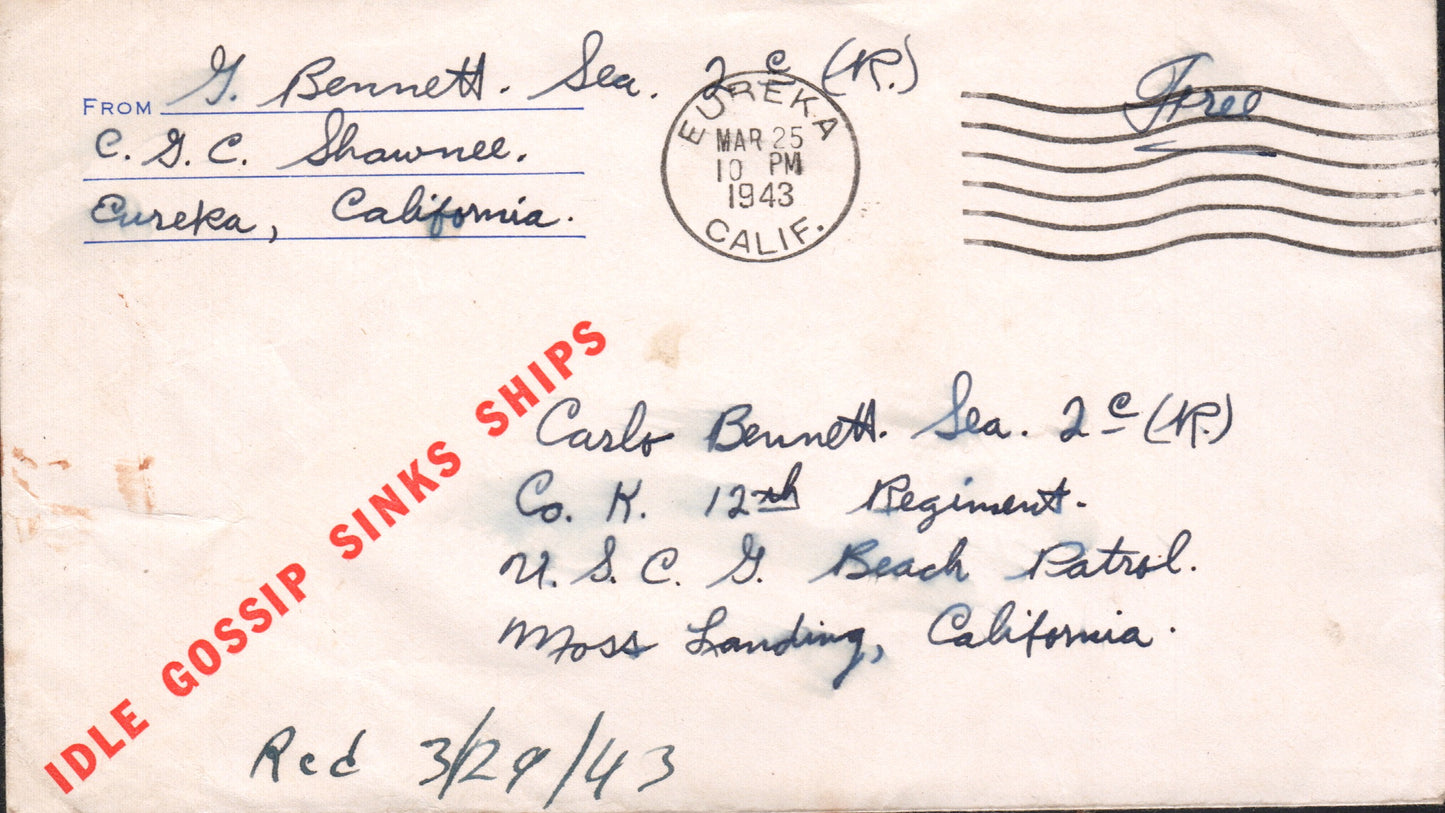 FROM G. Bennett. Sea. 2c (R.)
C. G. C. Shawnee.
Eureka, California.
EUREKA
MAR 25
10 PM
1943
CALIF.
Free
IDLE GOSSIP SINKS SHIPS
Carlo Bennett. Sea. 2c (R.)
Co. K. 12th Regiment.
U. S. C. G. Beach Patrol.
Moss Landing, California.
Rcd 3/29/43